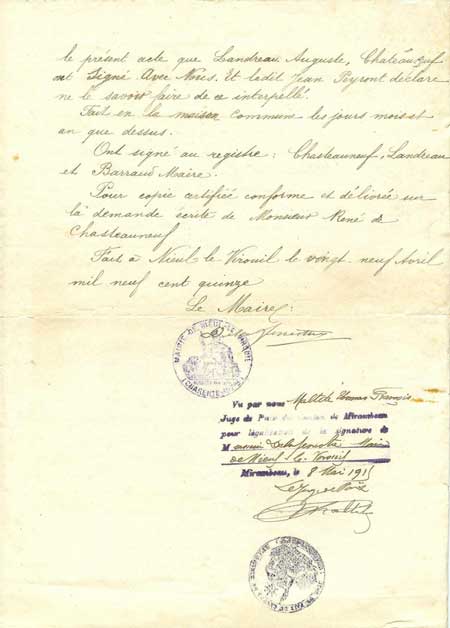 le présent acte que Landreau Auguste, Chateauneuf
ont Signé Avec Nous. Et ledit Jean Peyront déclare
ne le savoir faire de ce interpellé.
Fait en la maison commune les jours mois et
an que dessus.
Ont signé au registre : Chasteauneuf, Landreau
et Barraud Maire.
Pour copie certifiée conforme et délivrée sur
la demande écrite de Monsieur René de
Chasteauneuf
Fait à Nieul le Virouil le vingt neuf Avril
mil neuf cent quinze
Le Maire:
MAIRIE DE NIEUL LE VIROUIL
(CHARENTE-INF.)
Vu par nous Thomas François
Juge de Paix du canton de Mirambeau
pour légalisation de la signature de
Monsieur Maire
de Nieul-le-Virouil
Mirambeau, le 8 Mai 1915
Le Juge de Paix